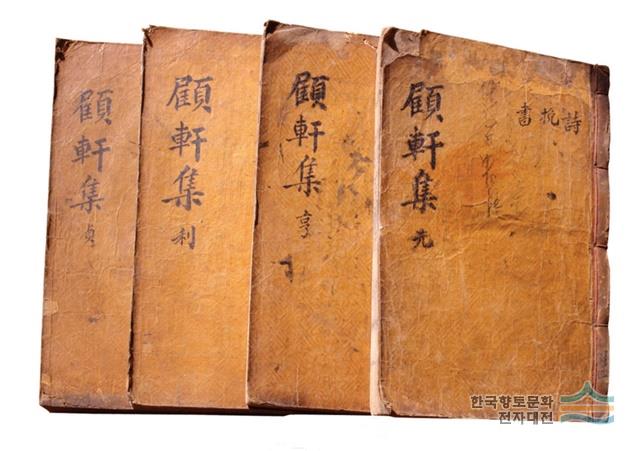 顧軒集 元
詩
挽
書
顧軒集 亨
顧軒集 利
顧軒集 貞
한국향토문화
전자대전